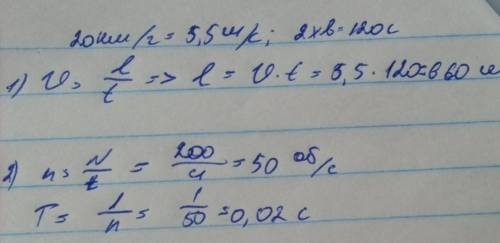 20км/г = 5,5м/с; 2хв=120с
1) υ = l/t => l = υ·t = 5,5·120=660 м
2) n = N/t = 200/4 = 50 об/с
T = 1/n = 1/50 = 0,02 с